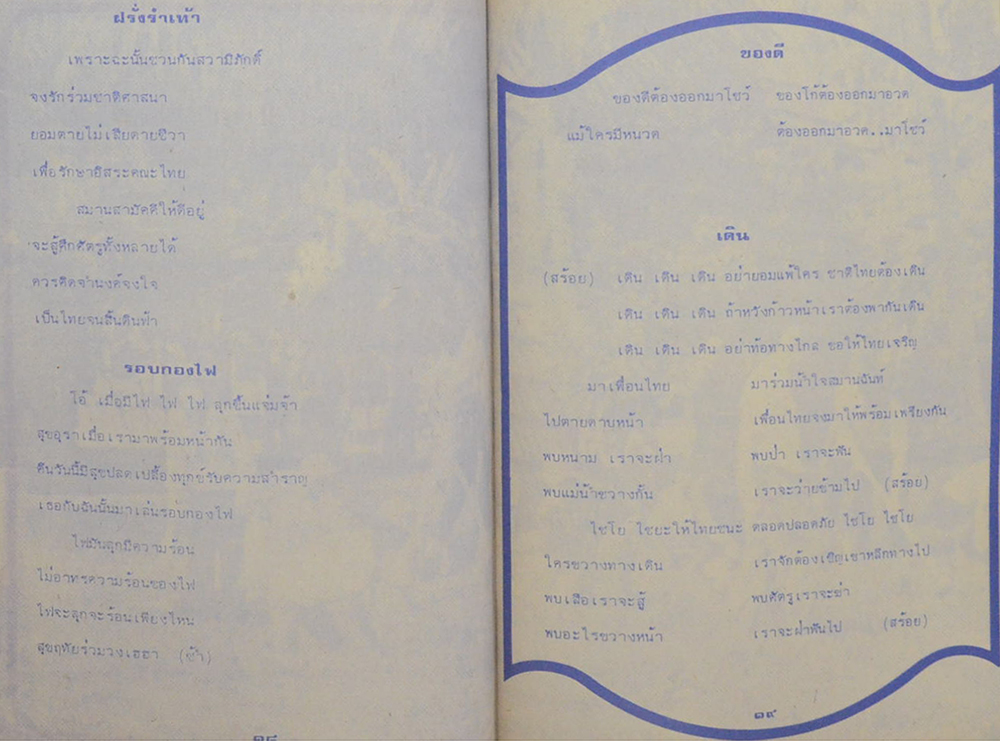 ฝรั่งรำเท้า
เพราะฉะนั้นชวนกันสวามิภักดิ์
จงรักร่วมชาติศาสนา
ยอมตายไม่เสียดายชีวา
เพื่อรักษาอิสระคณะไทย
สมานสามัคคีให้ดีอยู่
จะสู้ศึกศัตรูทั้งหลายได้
ควรคิดจำนงค์จงใจ
เป็นไทยจนสิ้นดินฟ้า
รอบกองไฟ
โอ้ เมื่อมีไฟ ไฟ ไฟ ลุกขึ้นแจ่มจ้า
สุขอุราเมื่อเรามาพร้อมหน้ากัน
คืนวันนี้มีสุขปลดเปลื้องทุกข์รับความสำราญ
เธอกับฉันนั้นมาเล่นรอบกองไฟ
ไฟมันลุกมีความร้อน
ไม่อาทรความร้อนของไฟ
ไฟจะลุกจะร้อนเพียงไหน
สุขฤทัยร่วมวงเฮฮา (ซ้ำ)
๑๘
ของดี
ของดีต้องออกมาโชว์ ของโก้ต้องออกมาอวด
แม้ใครมีหนวด ต้องออกมาอวด..มาโชว์
เดิน
(สร้อย) เดิน เดิน เดิน อย่ายอมแพ้ใคร ชาติไทยต้องเดิน
เดิน เดิน เดิน ถ้าหวังก้าวหน้าเราต้องพากันเดิน
เดิน เดิน เดิน อย่าท้อทางไกล ขอให้ไทยเจริญ
มาเพื่อนไทย มาร่วมน้ำใจสมานฉันท์
ไปตายดาบหน้า เพื่อนไทยจงมาให้พร้อมเพรียงกัน
พบหนาม เราจะฝ่า พบป่า เราจะฟัน
พบแม่น้ำขวางกั้น เราจะว่ายข้ามไป (สร้อย)
ไชโย ไชยะให้ไทยชนะ ตลอดปลอดภัย ไชโย ไชโย
ใครขวางทางเดิน เราจักต้องเชิญเขาหลีกทางไป
พบเสือเราจะสู้ พบศัตรูเราจะฆ่า
พบอะไรขวางหน้า เราจะฝ่าฟันไป (สร้อย)
๑๙